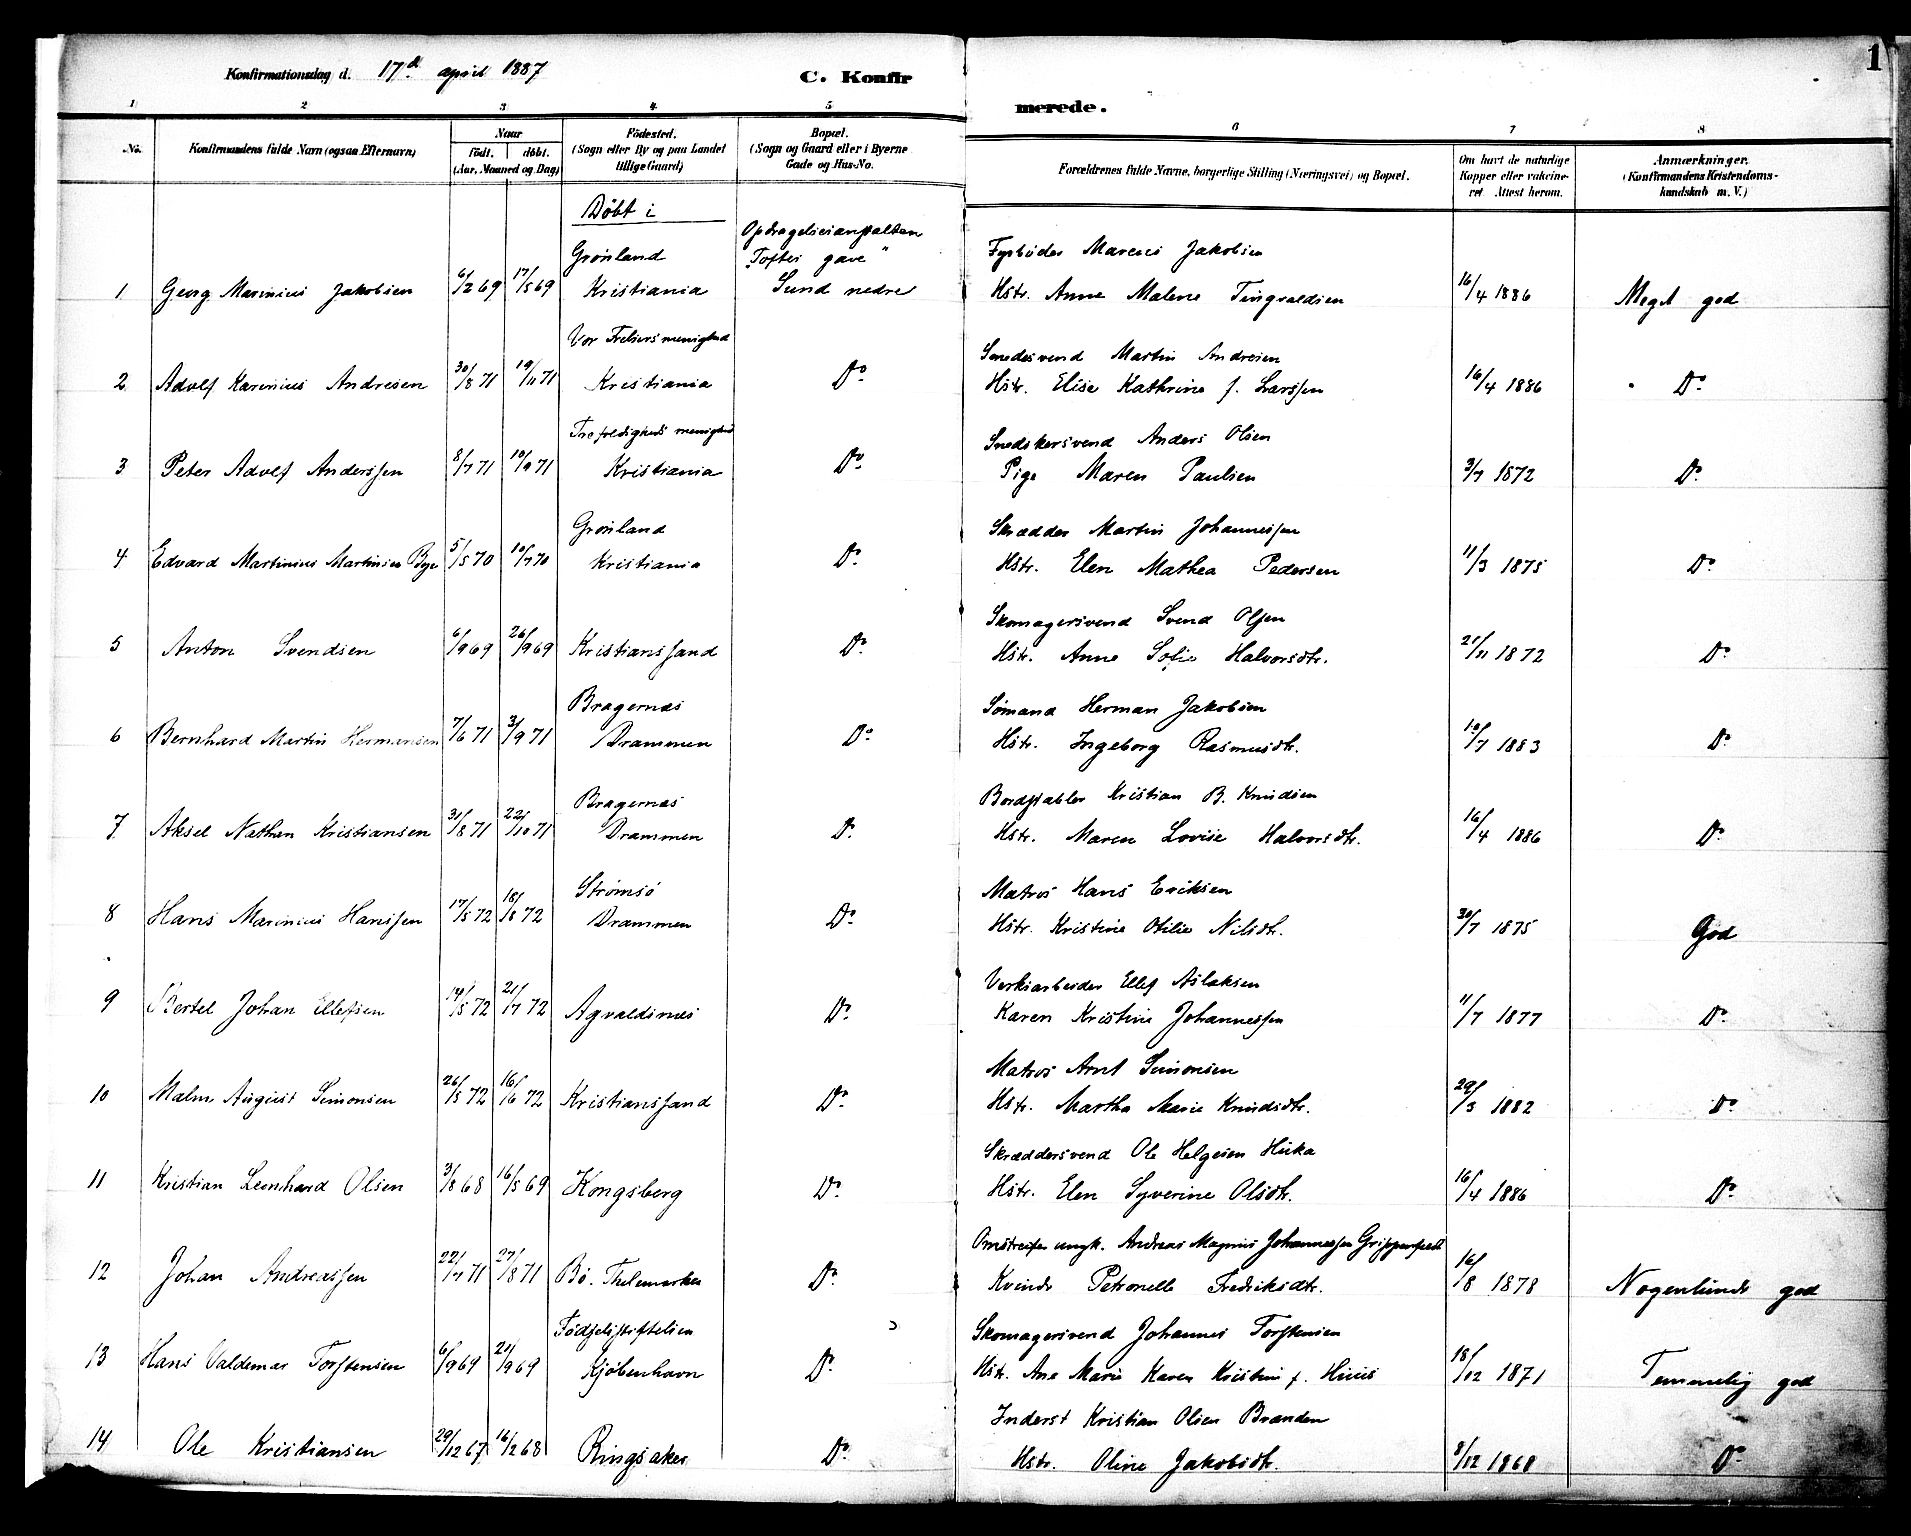 1
Konfirmationsdag d. 17d april 1887
C. Konfirmerede.
1 2 3 4 5 6 7 8
No. Konfirmandens fulde Navn (ogsaa Efternavn) Naar født. døbt. (Aar, Maaned og Dag) Fødested. (Sogn eller By og paa Landet tillige Gaard) Bopæl. (Sogn og Gaard eller i Byerne Gade og Hus-No. Forældrenes fulde Navne, borgerlige Stilling (Næringsvei) og Bopæl. Om havt de naturlige Kopper eller vakcineret. Attest herom. Anmærkninger. (Konfirmandens Kristendomskundskab m. V.)
Døbt i
Opdragelsesanstalten
Grønland "Toftes gave" Fyrbøder Marcus Jakobsen
1 Georg Marinius Jakobsen 6/2 69 17/5 69 Kristiania Sund nedre Hstr. Anne Malene Tingvaldsen 16/4 1886 Meget god
Vor Frelsers menighed Smedesvend Martin Andresen
2 Adolf Karinius Andresen 30/8 71 19/11 71 Kristiania Do Hstr. Elise Kathrine f. Larssen 16/4 1886 Do
Trefoldigheds menighed Snedkersvend Anders Olsen
3 Peter Adolf Anderssen 8/7 71 10/9 71 Kristiania Do Pige Maren Paulsen 3/7 1872 Do
Grønland Skrædder Martin Johannessen
4 Edvard Martinius Martinsen Bye 5/5 70 10/7 70 Kristiania Do Hstr. Elen Mathea Pedersen 11/3 1875 Do
Skomagersvend Svend Olsen
5 Anton Svendsen 6/9 69 26/9 69 Kristianssand Do Hstr. Anne Sofie Halvorsdtr. 21/11 1872 Do
Bragernæs Sømand Herman Jakobsen
6 Bernhard Martin Hermansen 7/6 71 3/9 71 Drammen Do Hstr. Ingeborg Rasmusdtr. 10/7 1883 Do
Bragernæs Bordstabler Kristian B. Knudsen
7 Aksel Nathan Kristiansen 31/8 71 22/10 71 Drammen Do Hstr. Maren Lovise Halvorsdtr. 16/4 1886 Do
Strømsø Matros Hans Eriksen
8 Hans Marinius Hanssen 17/5 72 18/8 72 Drammen Do Hstr. Kristine Otilie Nilsdtr. 30/7 1875 God
Verksarbeider Ellef Aslaksen
9 Bertel Johan Ellefsen 14/5 72 21/7 72 Agvaldsnæs Do Karen Kristine Johannessen 11/7 1877 Do
Matros Arnt Simonsen
10 Malm August Simonsen 26/5 72 16/6 72 Kristianssand Do Hstr. Martha Marie Knudsdtr. 29/3 1882 Do
Skræddersvend Ole Helgesen Huka
11 Kristian Leonhard Olsen 3/8 68 16/5 69 Kongsberg Do Hstr. Elen Syverine Olsdtr. 16/4 1886 Do
Omstreifer ungk. Andreas Magnus Johannessen
12 Johan Andreassen 22/7 71 27/8 71 Bø. Thelemarken Do Kvinde Petronelle Fredriksdtr. 16/8 1878 Nogenlunde god
Fødselsstiftelsen Skomagersvend Johannes Torstensen
13 Hans Valdemar Torstensen 6/9 69 21/9 69 Kjøbenhavn Do Hstr. Ane Marie Karen Kristine f. Huus 18/12 1871 Temmelig god
Inderst Kristian Olsen Brænden
14 Ole Kristiansen 29/12 67 16/2 68 Ringsaker Do Hstr. Oline Jakobsdtr. 8/12 1868 Do